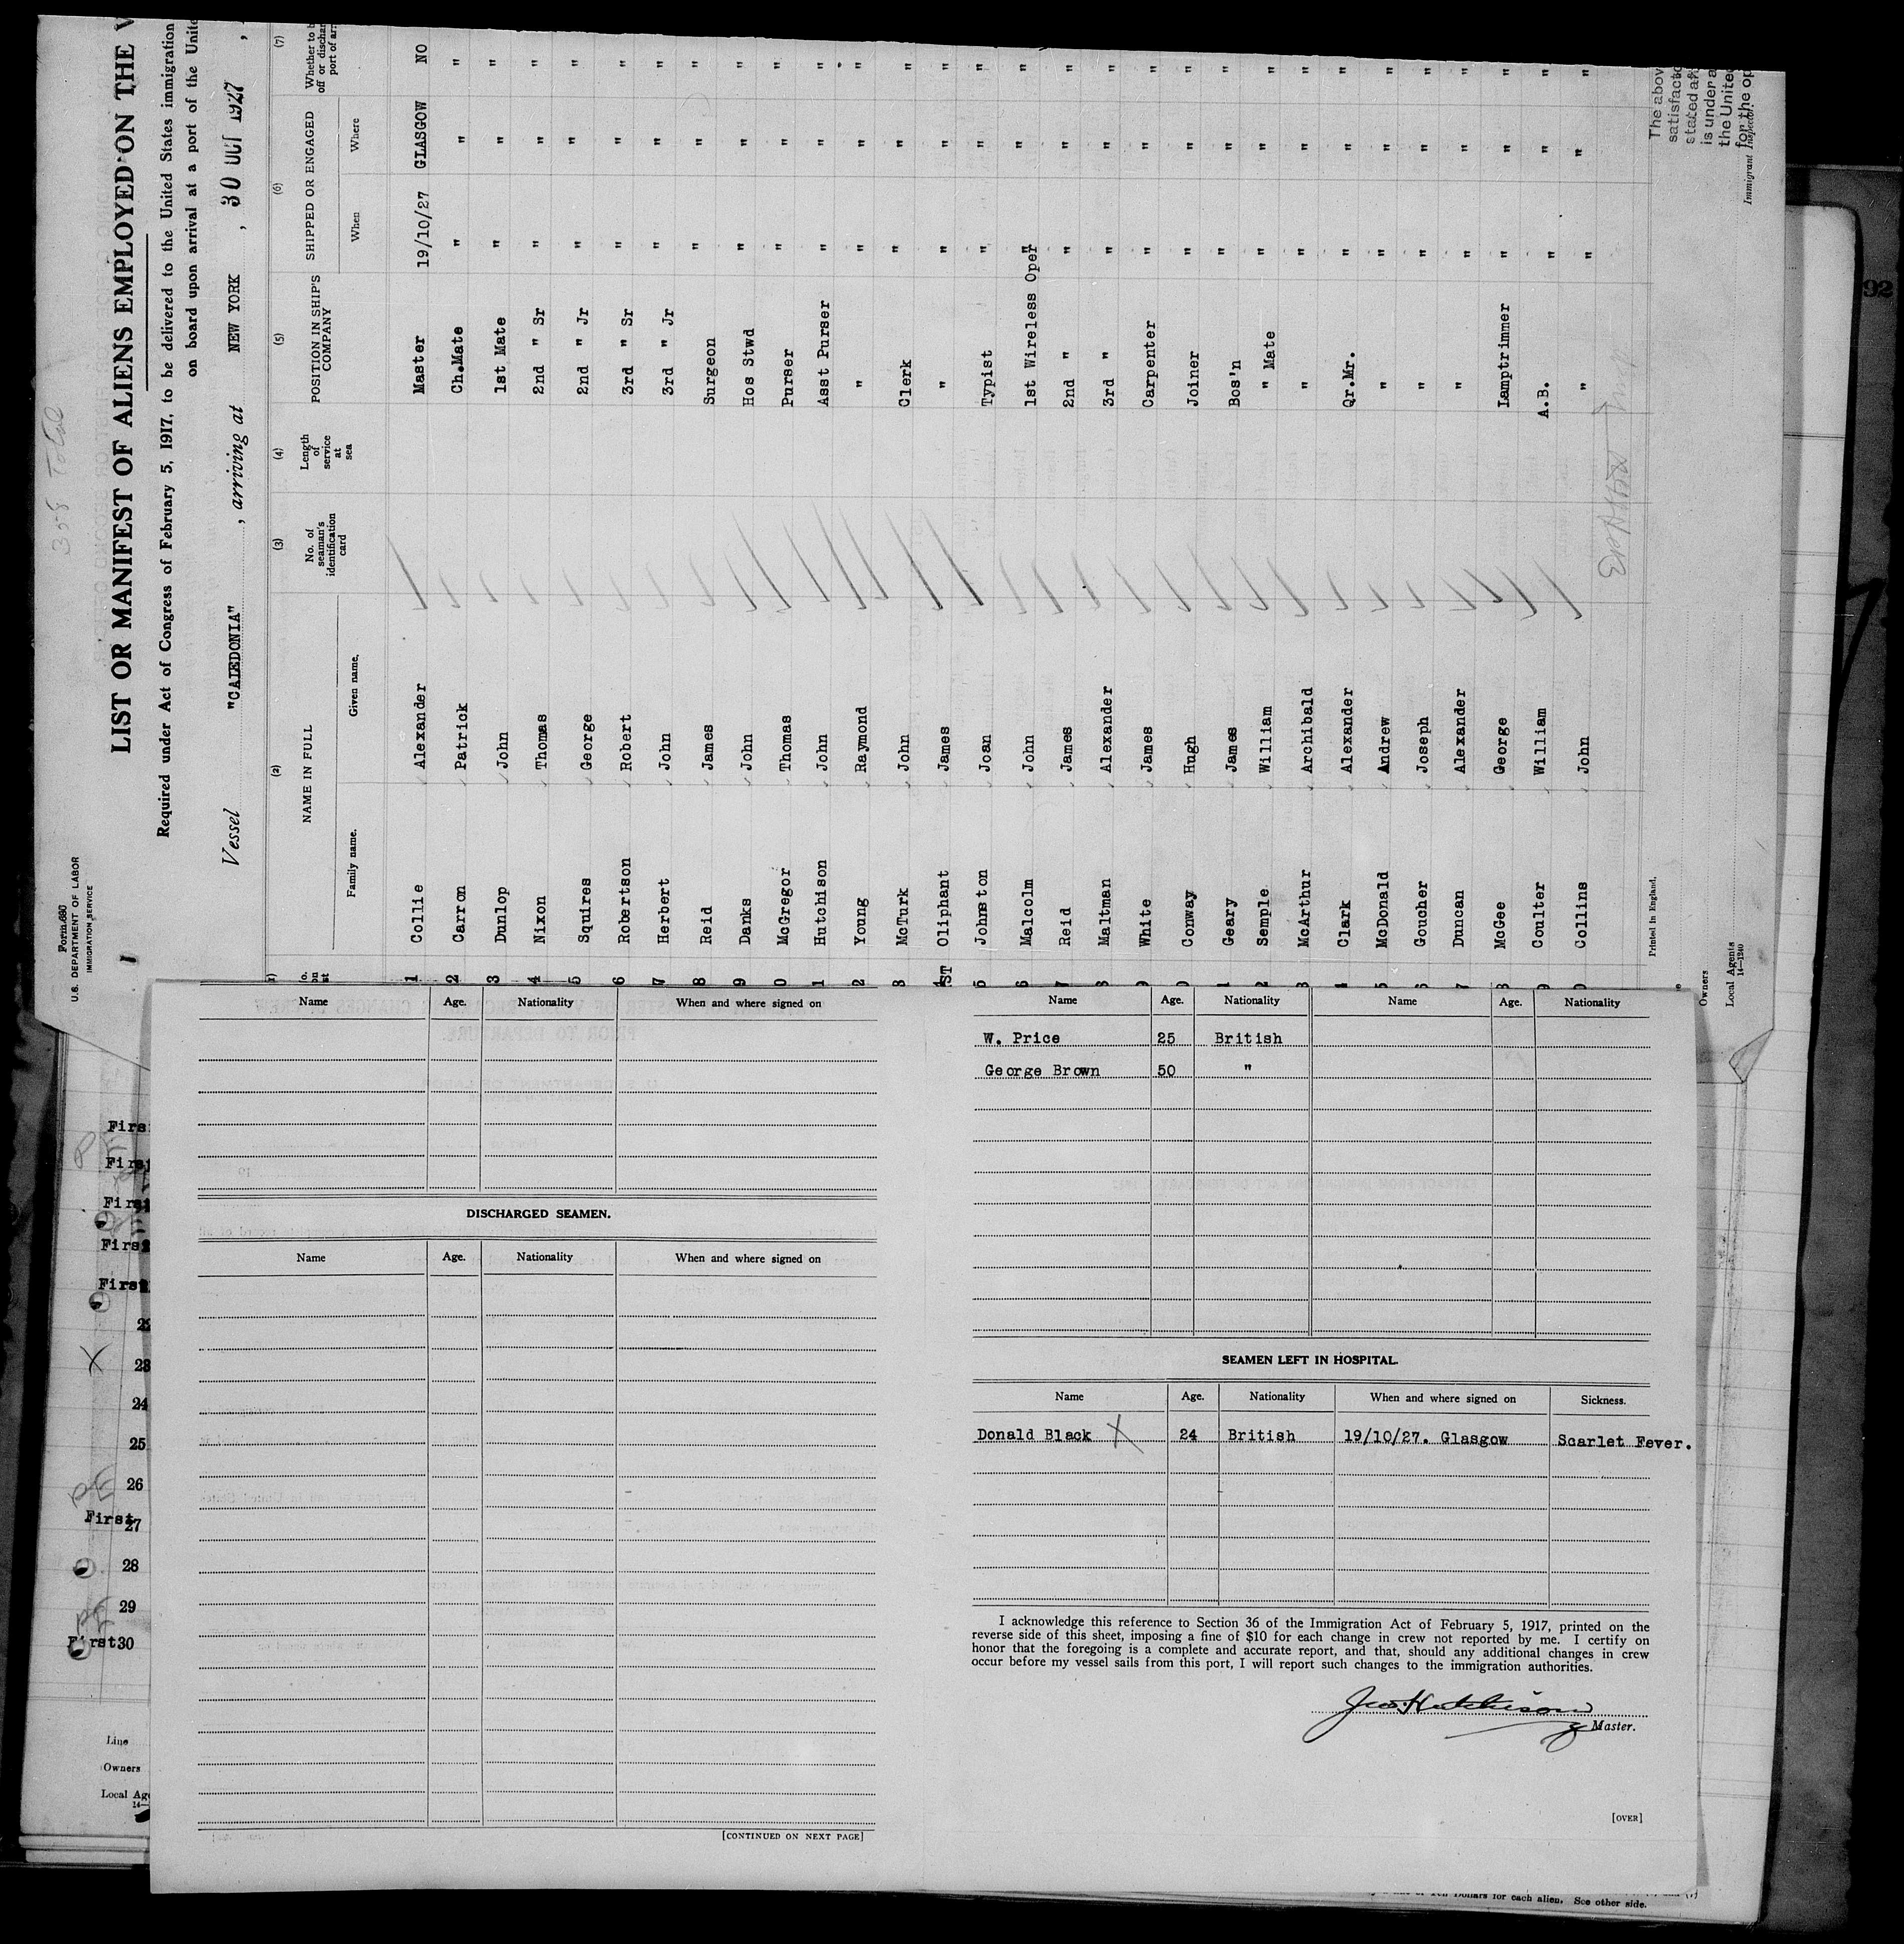 358 Total
Form 680
U.S. DEPARTMENT OF LABOR
IMMIGRATION SERVICE
LIST OR MANIFEST OF ALIENS EMPLOYED ON THE V
Required under Act of Congress of February 5, 1917, to be delivered to the United States immigration
on board upon arrival at a port of the Unite
Vessel "CALEDONIA", arriving at NEW YORK, 30 OCT 1927,
(2) (3) (4) (5) (6) (7)
NAME IN FULL
Family name. Given name.
No. of seaman's identification card
Length of service at sea
POSITION IN SHIP'S COMPANY
SHIPPED OR ENGAGED
When Where
Whether to b
off or dischar
port of arr
1 Collie Alexander Master 19/10/27 GLASGOW NO
2 Carron Patrick Ch.Mate " " "
3 Dunlop John 1st Mate " " "
4 Nixon Thomas 2nd " Sr " " "
5 Squires George 2nd " Jr " " "
6 Robertson Robert 3rd " Sr " " "
7 Herbert John 3rd " Jr " " "
8 Reid James Surgeon " " "
9 Danks John Hos Stwd " " "
0 McGregor Thomas Purser " " "
1 Hutchison John Asst Purser " " "
2 Young Raymond " " " "
3 McTurk John Clerk " " "
ST Oliphant James " " " "
5 Johnston Joan Typist " " "
6 Malcolm John 1st Wireless Oper " " "
7 Reid James 2nd " " " "
8 Maltman Alexander 3rd " " " "
9 White James Carpenter " " "
0 Conway Hugh Joiner " " "
1 Geary James Bos'n " " "
2 Semple William " Mate " " "
3 McArthur Archibald " " " "
4 Clark Alexander Qr.Mr. " " "
5 McDonald Andrew " " " "
6 Goucher Joseph " " " "
7 Duncan Alexander " " " "
8 McGee George Lamptrimmer " " "
9 Coulter William A.B. " " "
0 Collins John " " " "
Printed in England.
Owners
Local Agents
14—1240
The abov
satisfacto
stated an
is under a
the United
for the op
Immigrant Inspector.
92
Name Age. Nationality When and where signed on
DISCHARGED SEAMEN.
Name Age. Nationality When and where signed on
[CONTINUED ON NEXT PAGE]
Name Age. Nationality Name Age. Nationality
W. Price 25 British
George Brown 50 "
SEAMEN LEFT IN HOSPITAL.
Name Age. Nationality When and where signed on Sickness.
Donald Black X 24 British 19/10/27. Glasgow Scarlet Fever.
I acknowledge this reference to Section 36 of the Immigration Act of February 5, 1917, printed on the
reverse side of this sheet, imposing a fine of $10 for each change in crew not reported by me. I certify on
honor that the foregoing is a complete and accurate report, and that, should any additional changes in crew
occur before my vessel sails from this port, I will report such changes to the immigration authorities.
Jno. Hutchison
Master.
[OVER]
First
First
First
First
First
22
X 23
24
25
26
First 27
28
29
First 30
Line
Owners
Local Age
14—
Dollars for each alien. See other side.